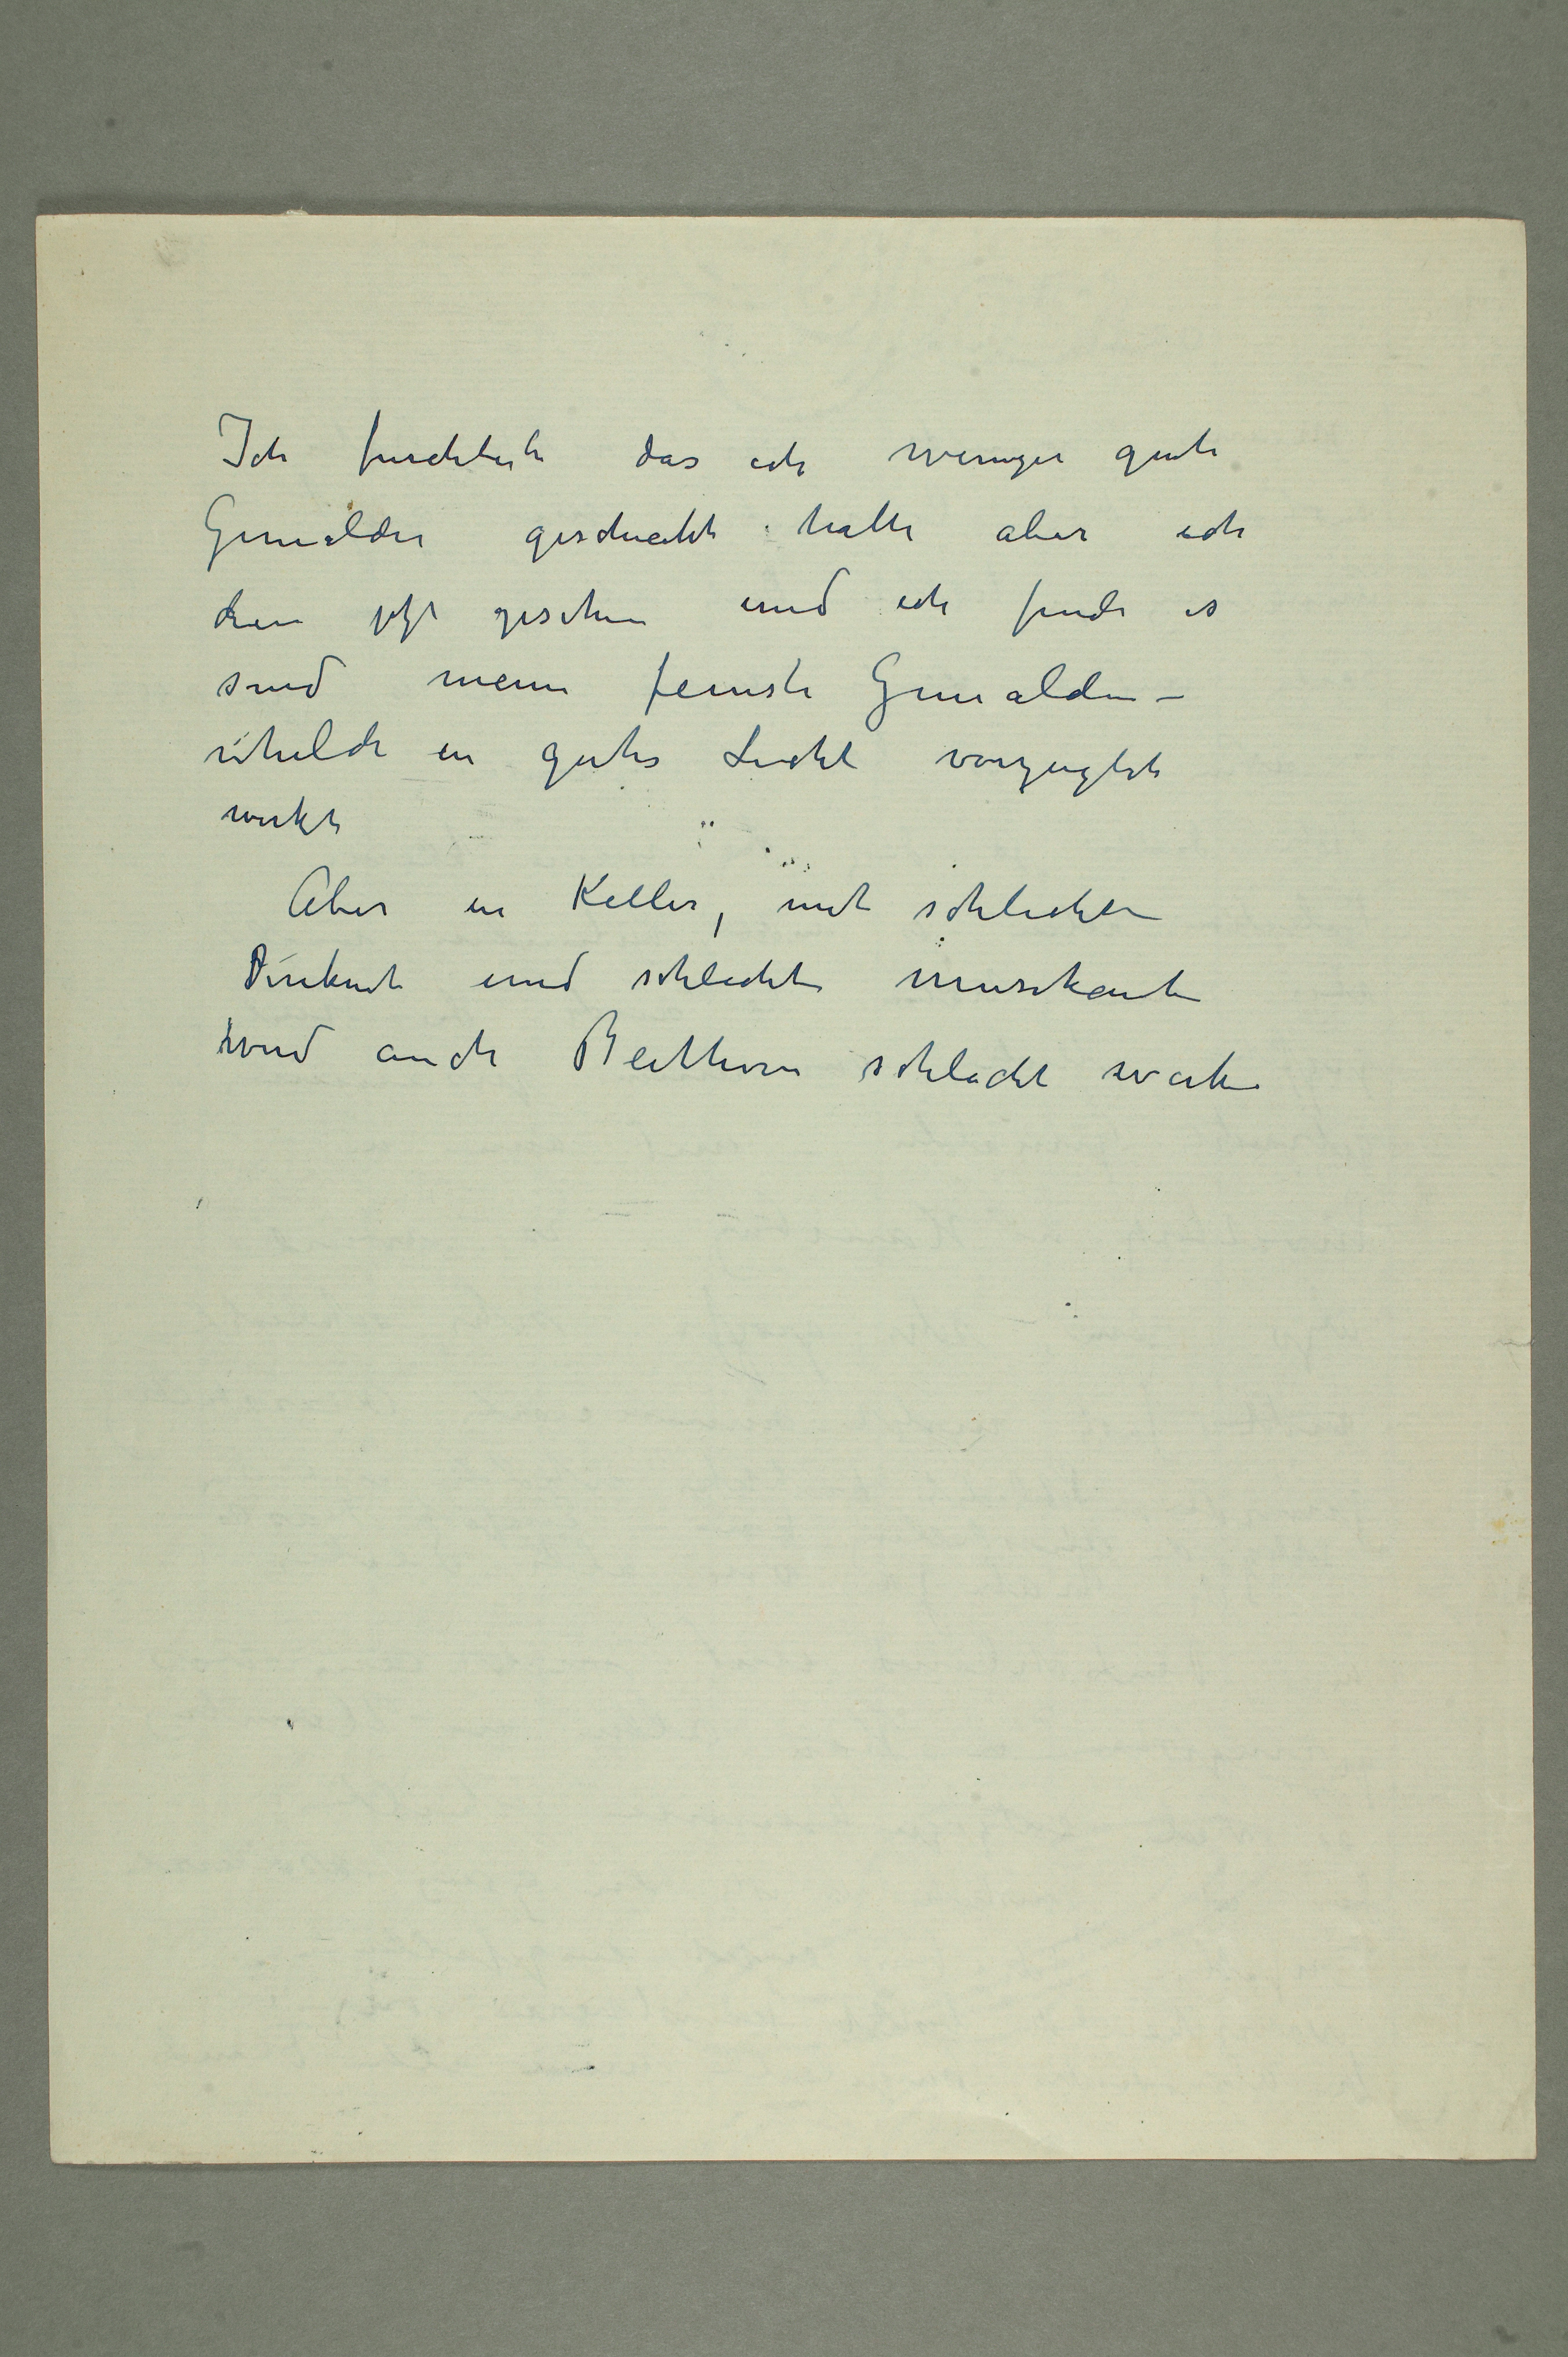 Ich furchtete das ich weniger gute
Gemälder geschickt hatte aber ich
den jetzt gesehen und ich finde es
sind meine feinste Gemälden –
in gutes Licht vorzüglich
wirkt
Aber in Keller, mit schlechten
Direkent und schlechte musikanten
wird auch Beethoven schlecht wirken